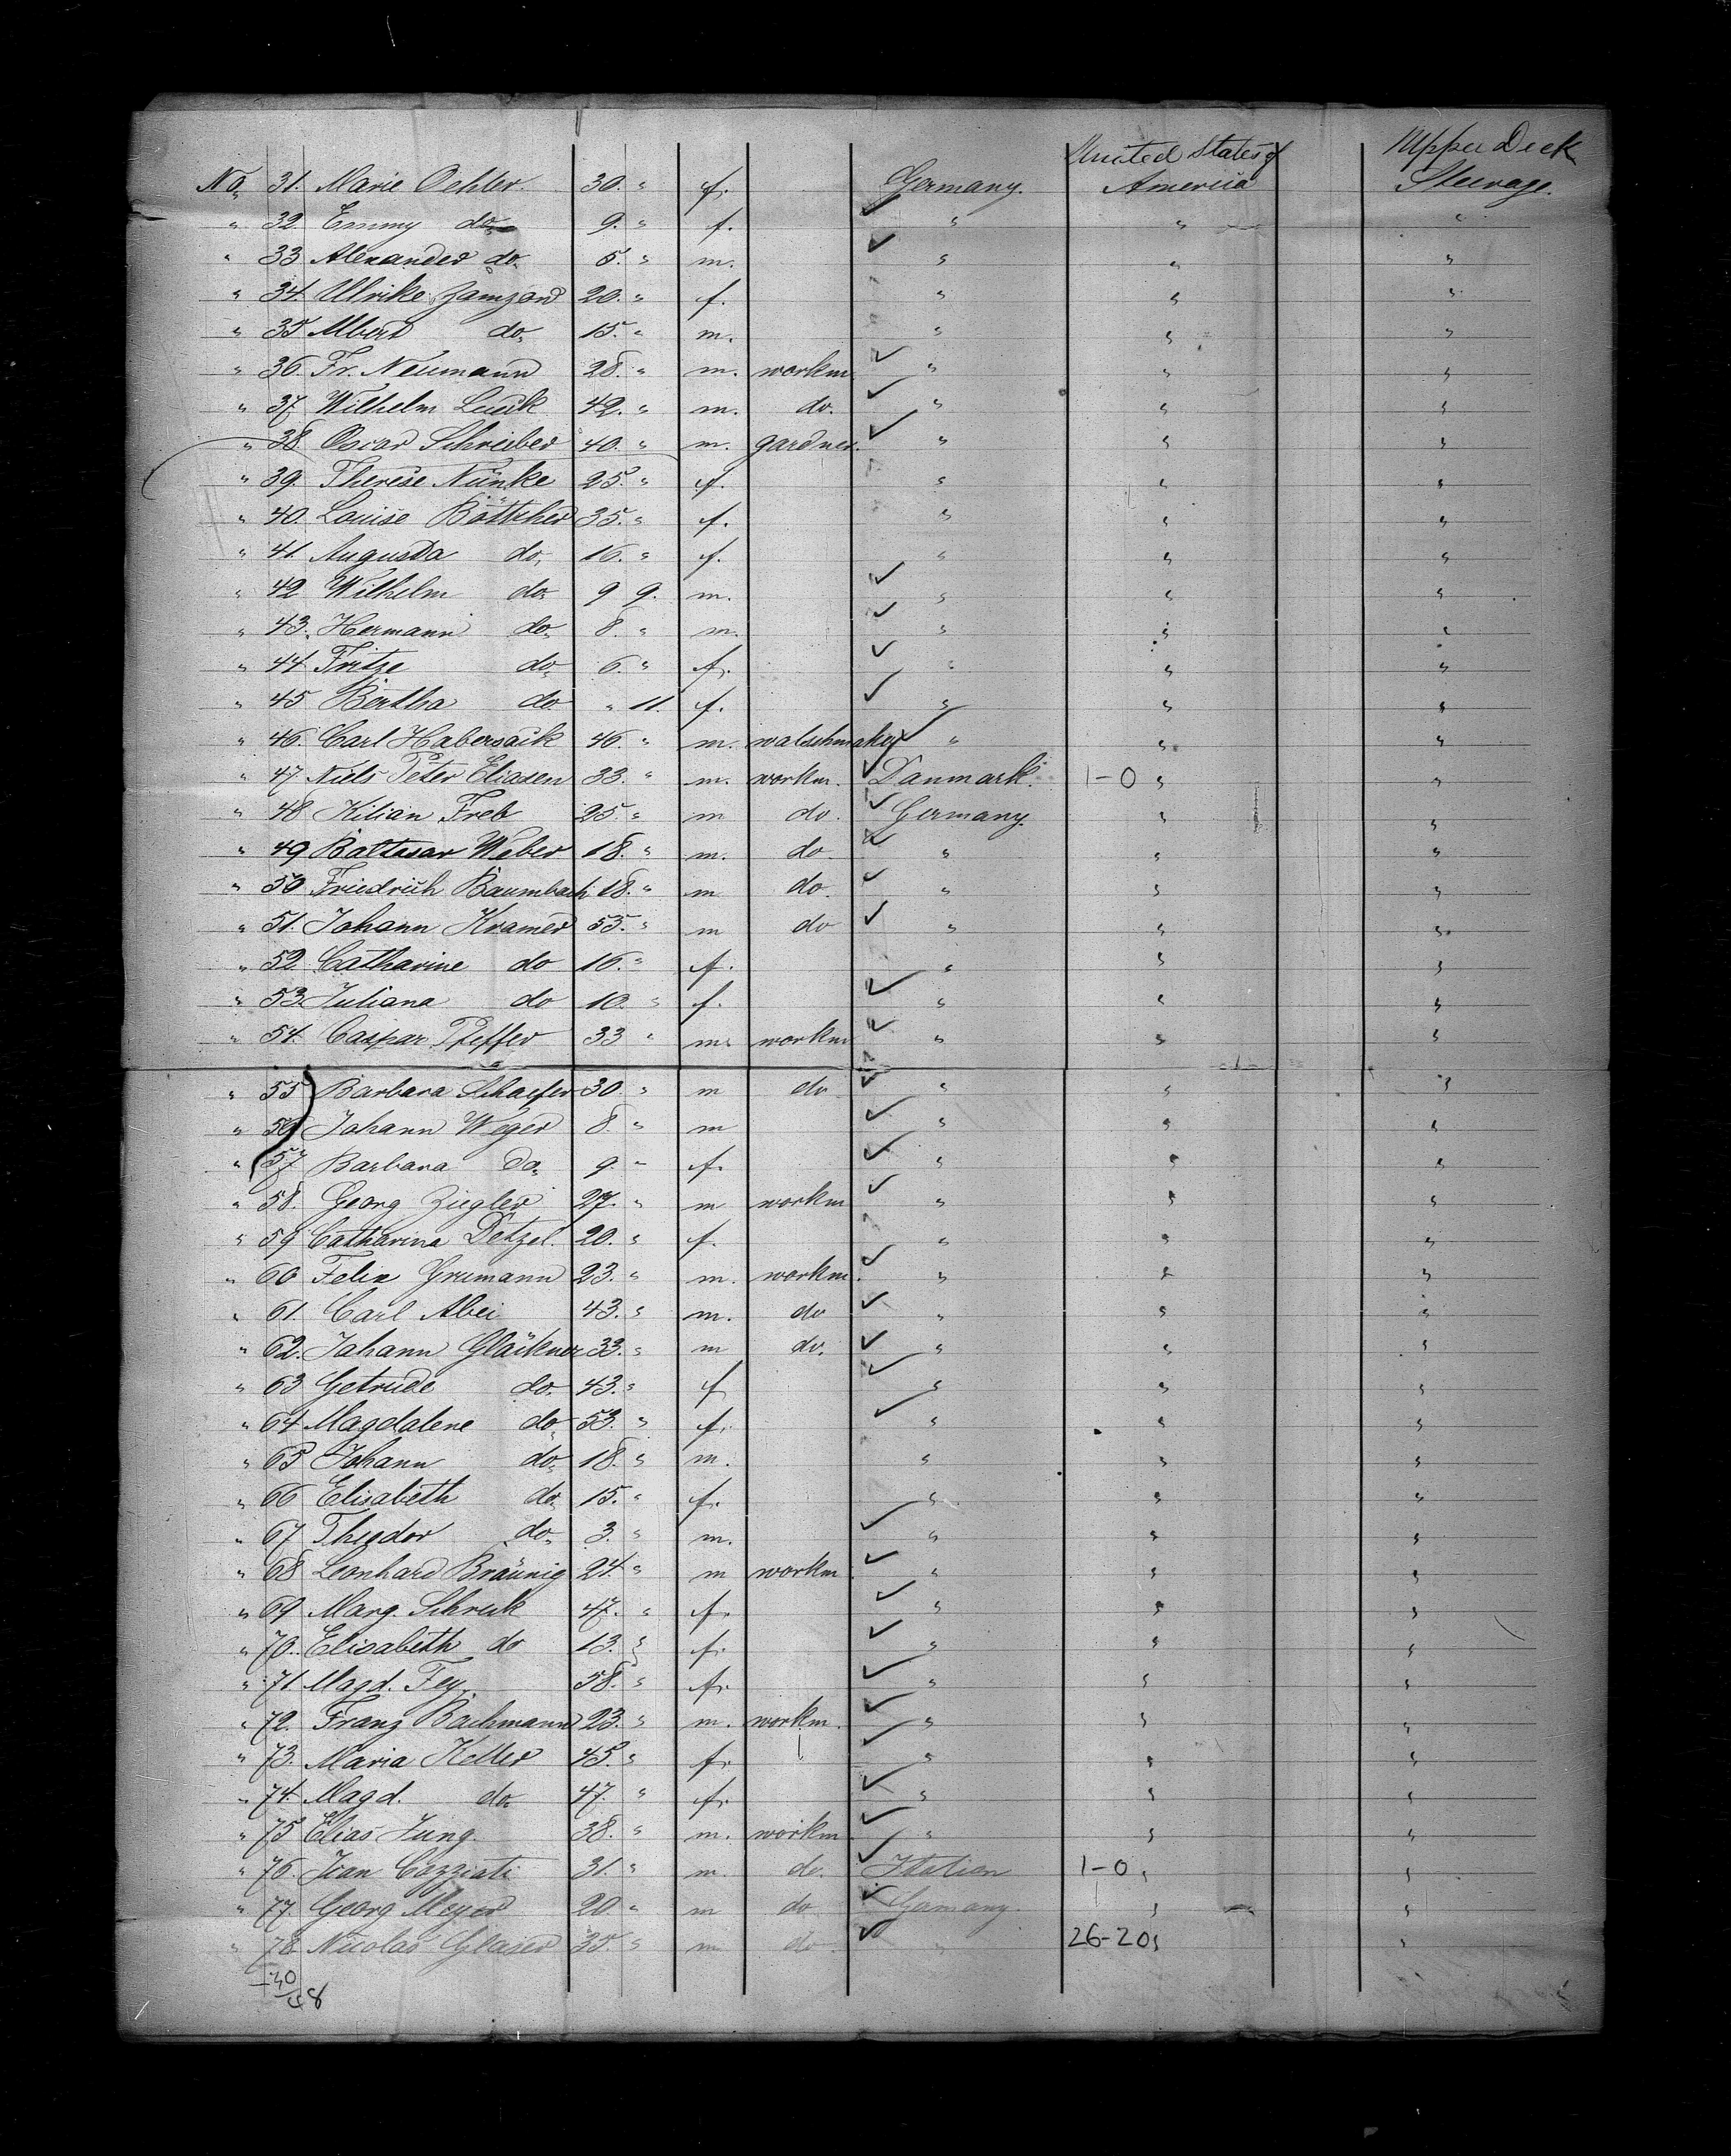 United States of Upper Deck
No. 31. Marie Oehler. 30. " f. Germany. America Steerage.
" 32. Emmy do. 9. " f. " " "
" 33 Alexander do. 5. " m. " " "
" 34 Ulrike 20. " f. " " "
" 35 Albert do. 15. " m. " " "
" 36. Fr. Neumann 28. " m. workm. " " "
" 37 Wilhelm 42. " m. do. " " "
" 38. Oscar Schreiber 40. " m. gardner. " " "
" 39. Therese Nünke 25. " f. " " "
" 40. Louise Böttcher 35. " f. " " "
" 41. Augusta do. 16. " f. " " "
" 42 Wilhelm do. 9 9. m. " " "
" 43. Hermann do. 8. " m. " " "
" 44. Fritze do. 6. " f. " " "
" 45 Bertha do. " 11. f. " " "
" 46. Carl Habersack 46. " m. watschmaker " " "
" 47. Niels Peter Eliasen 33. " m. workm. Danmark. 1-0 " "
" 48 Kilian Freb 25. " m do. Germany. " "
" 49 Baltasar Weber 18. " m. do. " " "
" 50 Friedrich Baumbach 18. " m do. " " "
" 51. Johann Kramer 55. " m do " " "
" 52. Catharine do 16. " f. " " "
" 53. Juliana do 10. " f. " " "
" 54. Caspar Pfeffer 33 " m. workm " " "
" 55 Barbara Schaefer 30. " m do " " "
" 56 Johann Weger 8. " m " " "
" 57 Barbara Do. 9. " f. " " "
" 58. Georg Ziegler 27. " m workm " " "
" 59 Catharina Detzel. 20. " f. " " "
" 60 Felix Grumann 23. " m. workm. " " "
" 61. Carl Abei 43. " m. do " " "
" 62. Johann Gläckner 33. " m do. " " "
" 63 Getrude do. 43. " f " " "
" 64 Magdalene do. 53. " f. " " "
" 65 Johann do. 18. " m. " " "
" 66 Elisabeth do. 15. " f. " " "
" 67 Theodor do. 3. " m. " " "
" 68 Leonhard Bräunig 24. " m workm " " "
" 69 Marg. Schreck 47. " f. " " "
" 70. Elisabeth do 13. " f. " " "
" 71 Magd. Fey. 58. " f. " " "
" 72. Franz Bachmann 23. " m. workm. " " "
" 73. Maria Keller 45. " f. " " "
" 74. Magd. do. 47. " f. " " "
" 75 Elias Jung. 38. " m. workm " " "
" 76. Ivan Cazziati 31. " m. do. Italien 1-0 " "
" 77. Georg Meyer 20. " m do Germany. " "
" 78. Nicolas Glaser 35. " m do " 26-20 " "
-30
48